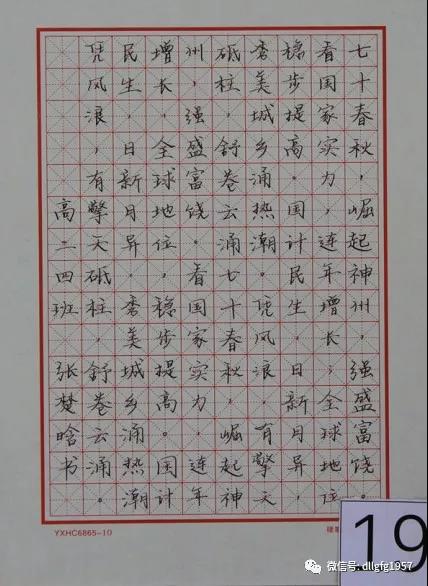 七十春秋，崛起神州，强盛富饶。
看国家实力，连年增长，全球地位
稳步提高。国计民生，日新月异，
秀美城乡涌热潮。凭风浪，有擎天
砥柱，舒卷云涌七十春秋，崛起神
州，强盛富饶。看国家实力，连年
增长，全球地位，稳步提高。国计
民生，日新月异，秀美城乡涌热潮
凭风浪，有擎天砥柱，舒卷云涌。
高二四班 张晗书
YXHC6865-10
19
微信号: dllgfg1957